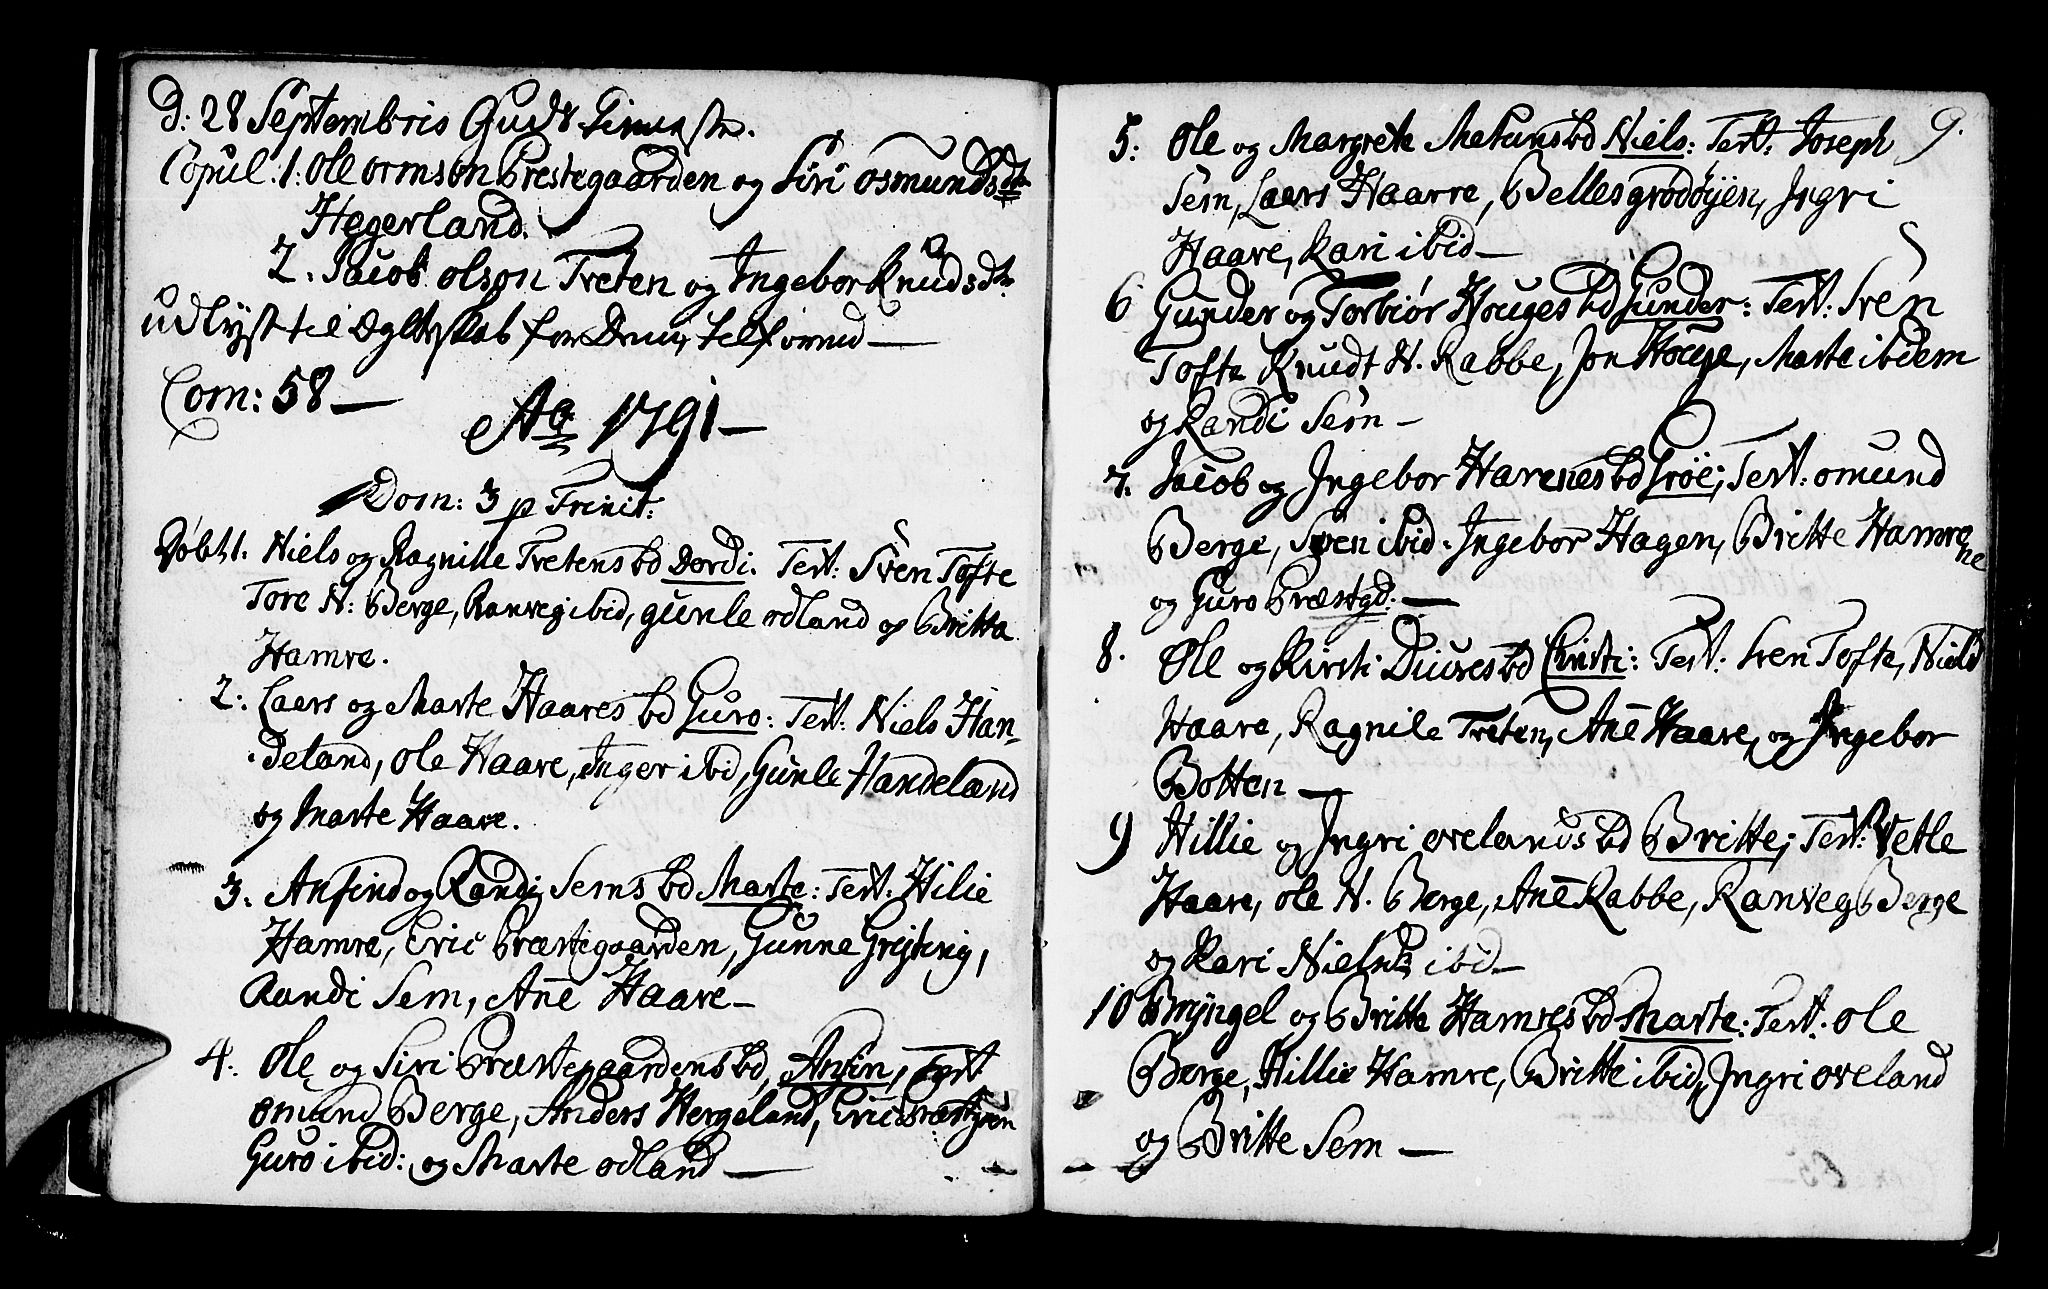 D: 28 Septembris Guds Tieneste.
Copul. 1: Ole Ormson Prestegaarden og Siri Osmundsdtr
Hegerland.
2. Jacob Olson Treten og Ingebor Knudsdtr
udlyst til Ægteskab for Dem,
Com: 58 —
Ao 1791 —
Dom: 3 p Trinit:
Døbt 1. Niels og Ragnille Tretens bd Dordi. Test: Sven Tofte
Tore N: Berge, Ranveg ibid, Gunle Odland og Britta
Hamre.
2: Laers og Marte Haares bd Guro: Test: Niels Han-
deland, Ole Haare, Inger ibid, Gunle Handeland
og Marte Haare.
3. Anfind og Randi Sems bd Marte: Test: Hilie
Hamre, Eric Præstegaarden, Gunne
Randi Sem, Ane Haare —
4. Ole og Siri Præstegaardens bd, Anfin, Test
Omund Berge, Anders Hergeland, Eric
Guro ibid: og Marte Odland —
9.
5: Ole og Margrete bd Niels: Test: Joseph
Sem, Laers Haare, Ingri
Haare, Kari ibid —
6 Gunder og Torbiør Houges bd Gunder: Test: Sven
Tofte Knudt N. Rabbe, Jon Houge, Marte ibdem
og Randi Sem —
7. Jacob og Ingebor Harenes bd Groe; Test: Omund
Berge, Sven ibid. Ingebor Hagen, Britte Hamre
ne
og Guro Præstgd: —
8. Ole og Kirsti Diures bd Christi: Test: Sven Tofte, Niels
Haare, Ragnile Treten, Ane Haare, og Ingebor
Botten —
9 Hillie og Ingri Ovelands bd Britte; Test: Vetle
Haare, Ole N. Berge, Ane Rabbe, Ranveg Berge
og Kari ibid —
10 Bryngel og Britte Hamres bd Marte: Test: Ole
Berge, Hillie Hamre, Britte ibid, Ingri Oveland
og Britte Sem —